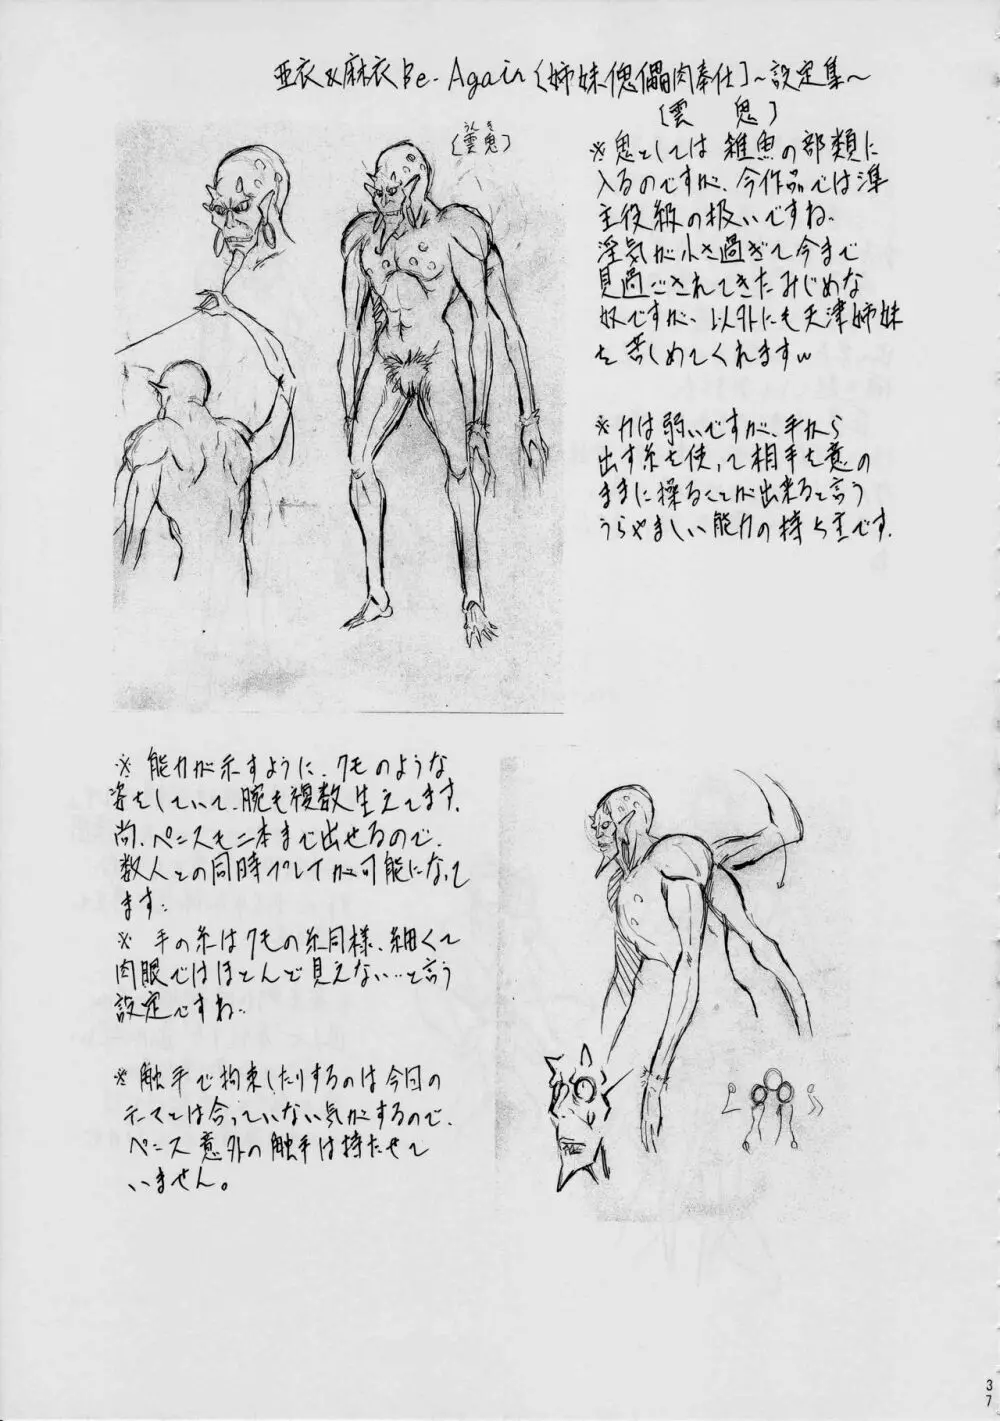 亜衣&麻衣Be-Again〔姉妹傀儡肉奉仕〕~設定集~
〔雲鬼〕
〔雲鬼〕
うんき
※鬼としては雑魚の部類に
入るのですが、今作品では準
主役級の扱いですね.
淫気が小さ過ぎて今まで
見過ごされてきたみじめな
奴ですが、以外にも天津姉妹
を苦しめてくれますw
※力は弱いですが、手から
出す糸を使って相手を意の
ままに操ることが出来ると言う
うらやましい能力の持ち主です.
※能力が示すように、クモのような
姿をしていて、腕も複数生えてます.
尚、ペニスも二本まで出せるので、
数人との同時プレイが可能になって
ます.
※手の糸はクモの糸同様、細くて
肉眼ではほとんど見えない…と言う
設定ですね..
※触手で拘束したりするのは今回の
テーマとは合っていない気がするので、
ペニス意外の触手は持たせて
いません。
37